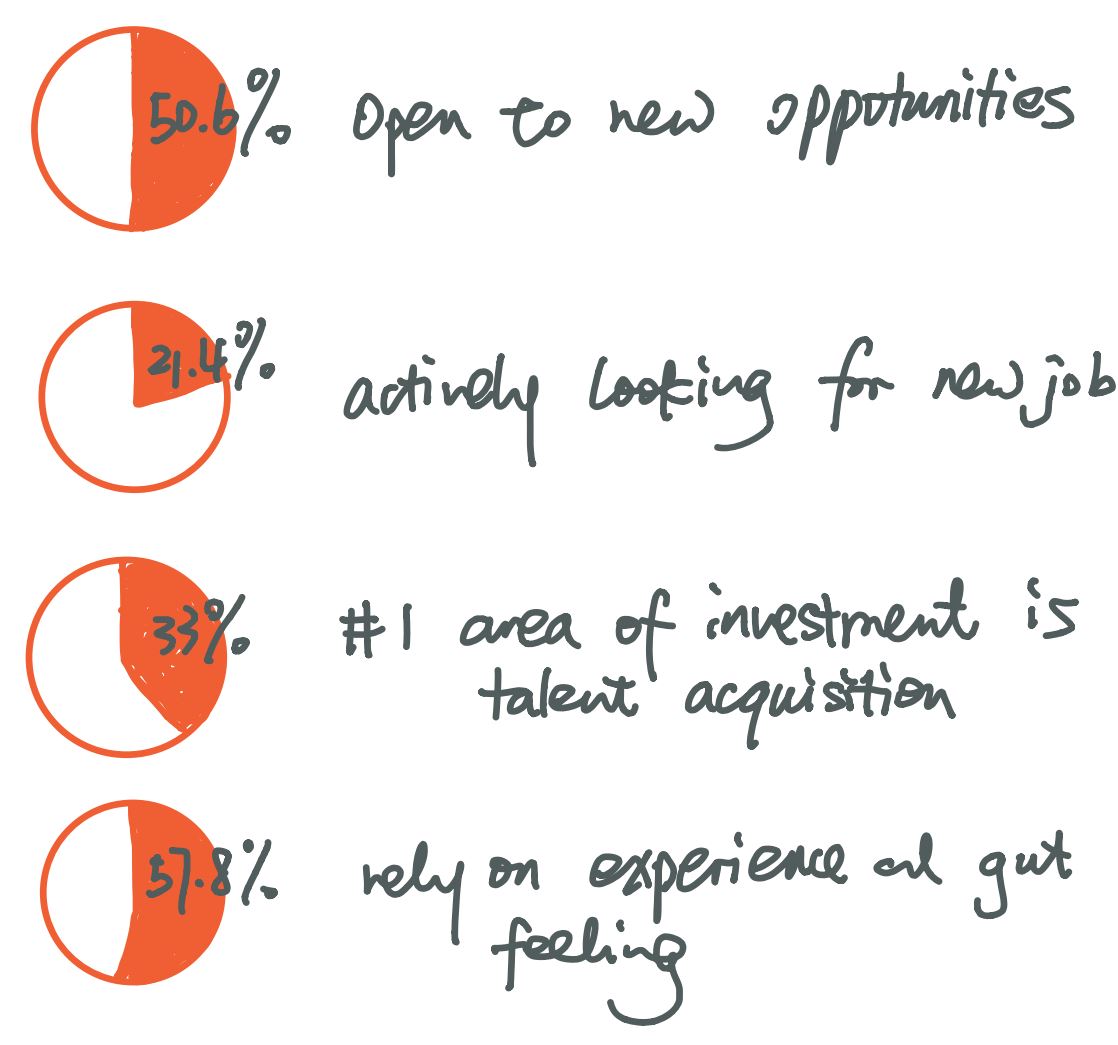 50.6% Open to new oppotunities
21.4% actively looking for new job
33% #1 area of investment is
talent acquisition
57.8% rely on experience and gut
feeling